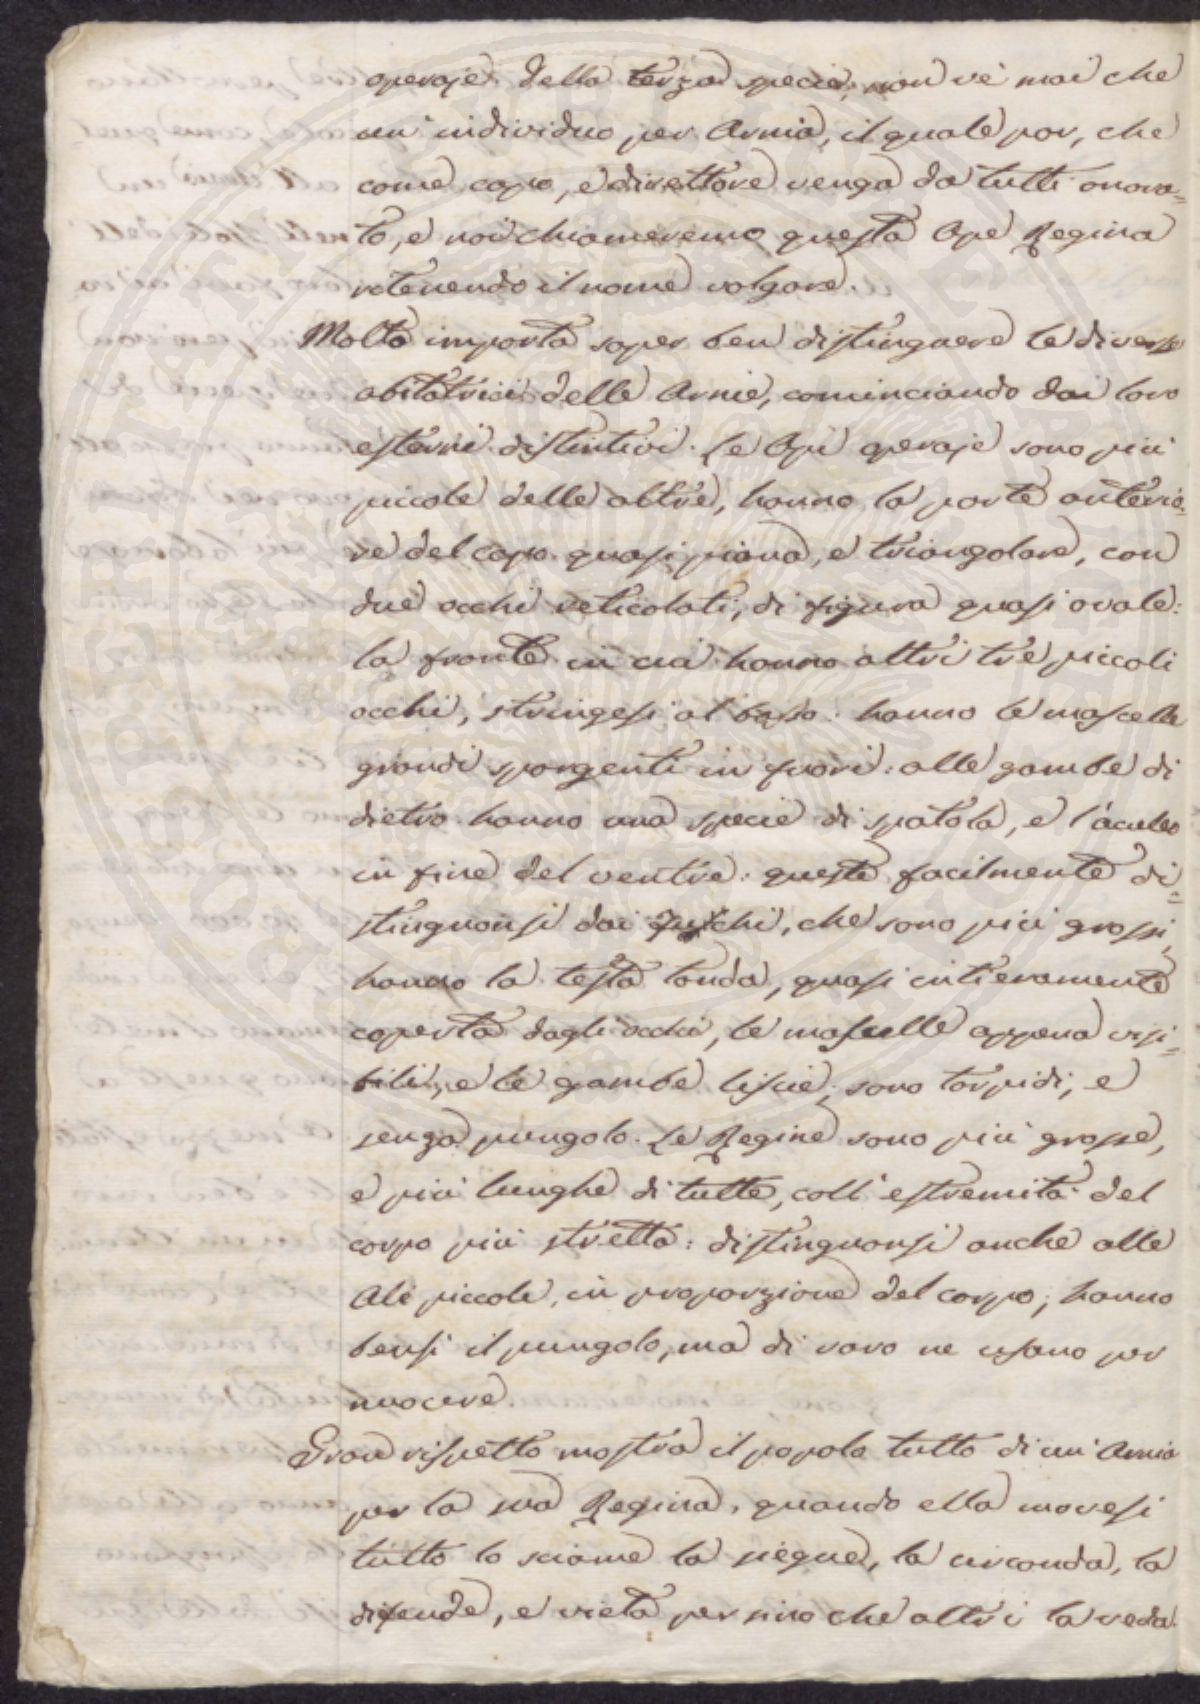 operaje. Della terza specie, non v'è mai che
un' individuo per Arnia, il quale par, che
come capo, e direttore venga da tutti onora=
to, e noi chiameremo questa Ape Regina
ritenendo il nome volgare.
Molto importa saper ben distinguere le diverse
abitatrici delle Arnie, cominciando dai loro
esterni distintivi. Le Api operaje sono più
piccole delle altre, hanno la parte anterio=
re del capo quasi piana, e triangolare, con
due occhi reticolati, di figura quasi ovale:
la fronte in cui hanno altri tre piccoli
occhi, stringesi al basso: hanno le mascelle
grandi sporgenti in fuori: alle gambe di
dietro hanno una specie di spatola, e l'aculeo
in fine del ventre: queste facilmente di=
stinguonsi dai Fuchi, che sono più grossi,
hanno la testa tonda, quasi intieramente
coperta dagli occhi, le mascelle appena visi=
bili, e le gambe liscie, sono torpidi, e
senza pungolo. Le Regine sono più grosse,
e più lunghe di tutte, coll' estremità del
corpo più stretta: distinguonsi anche alle
Ali piccole, in proporzione del corpo; hanno
bensi il pungolo, ma di raro ne usano per
nuocere.
Gran rispetto mostra il popolo tutto di un' Arnia
per la sua Regina, quando ella movesi
tutto lo sciame la siegue, la circonda, la
difende, e vieta per sino che altri la veda.
PROSPERITATI PUBLICAE AUGENDAE